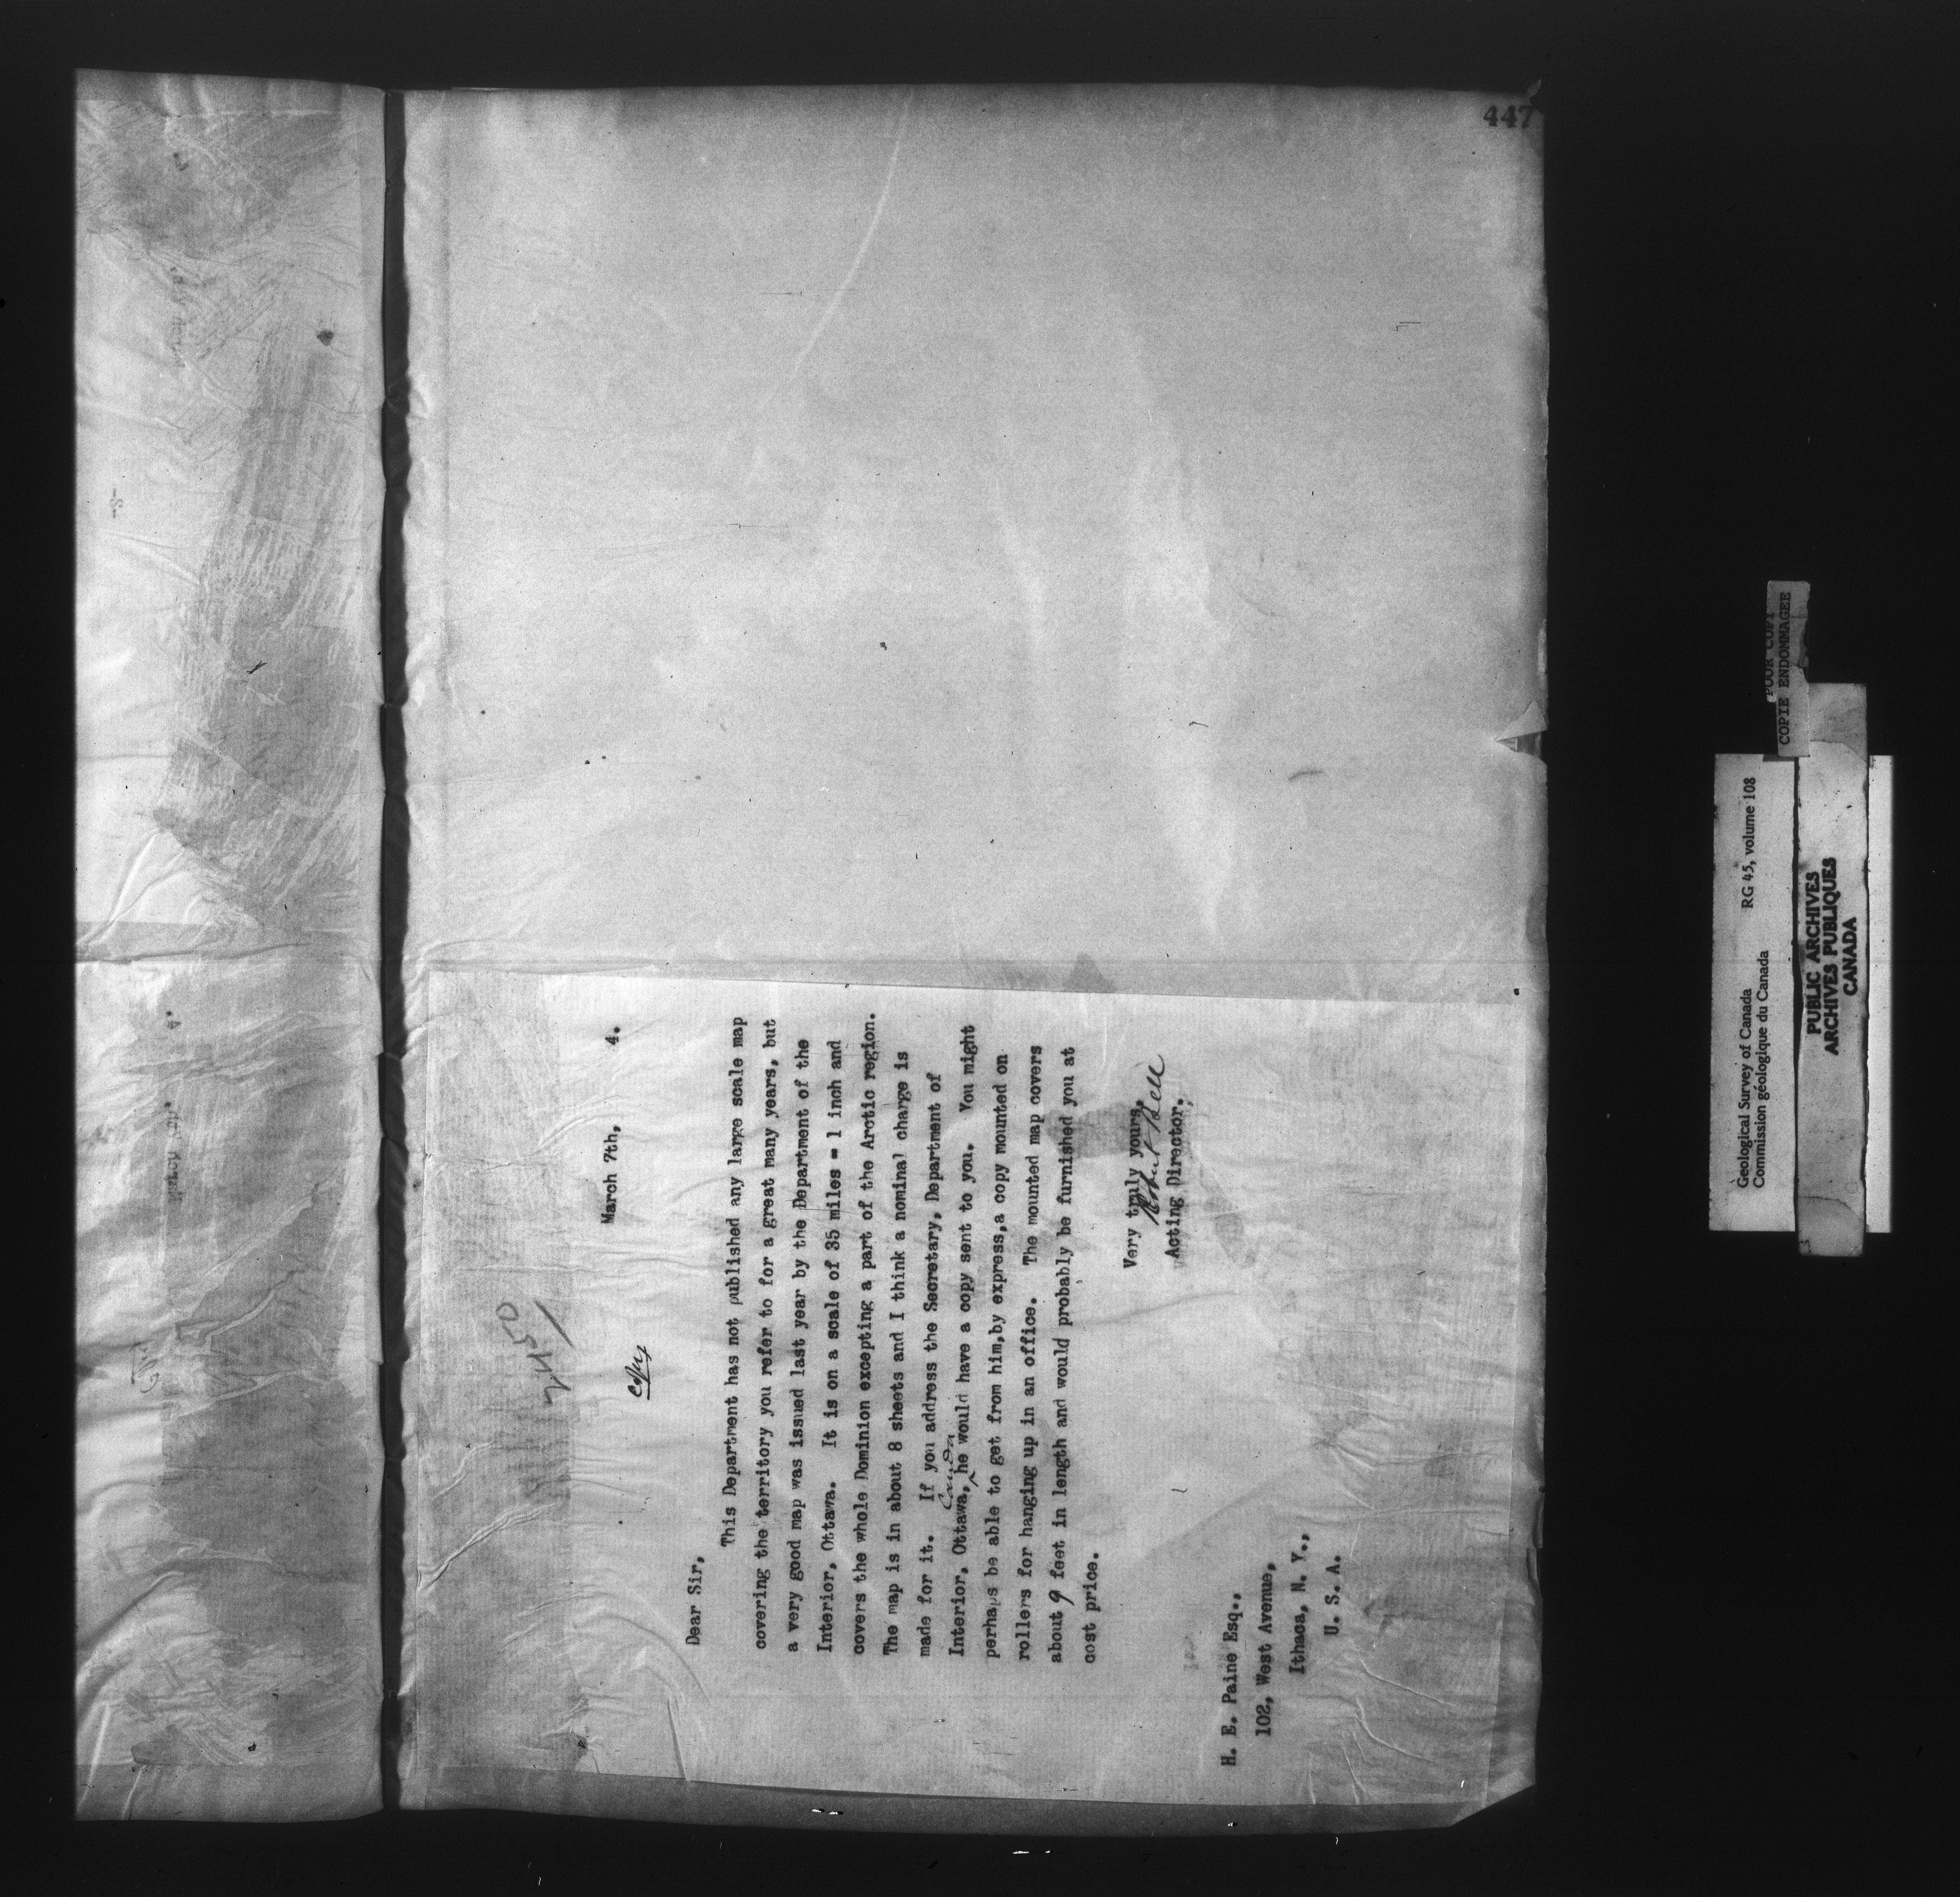 447
2450
March 7th, 4.
Copy
Dear Sir,
This Department has not published any large scale map
covering the territory you refer to for a great many years, but
a very good map was issued last year by the Department of the
Interior, Ottawa. It is on a scale of 35 miles = 1 inch and
covers the whole Dominion excepting a part of the Arctic region.
The map is in about 8 sheets and I think a nominal charge is
made for it. If you address the Secretary, Department of
Canada
Interior, Ottawa, he would have a copy sent to you. You might
perhaps be able to get from him, by express, a copy mounted on
rollers for hanging up in an office. The mounted map covers
about 9 feet in length and would probably be furnished you at
cost price.
Very truly yours,
Robert Bell
Acting Director.
H. E. Paine Esq.,
102, West Avenue,
Ithaca, N. Y.,
U. S. A.
Geological Survey of Canada RG 45, volume 108
Commission géologique du Canada
POOR COPY
COPIE ENDOMMAGEE
PUBLIC ARCHIVES
ARCHIVES PUBLIQUES
CANADA